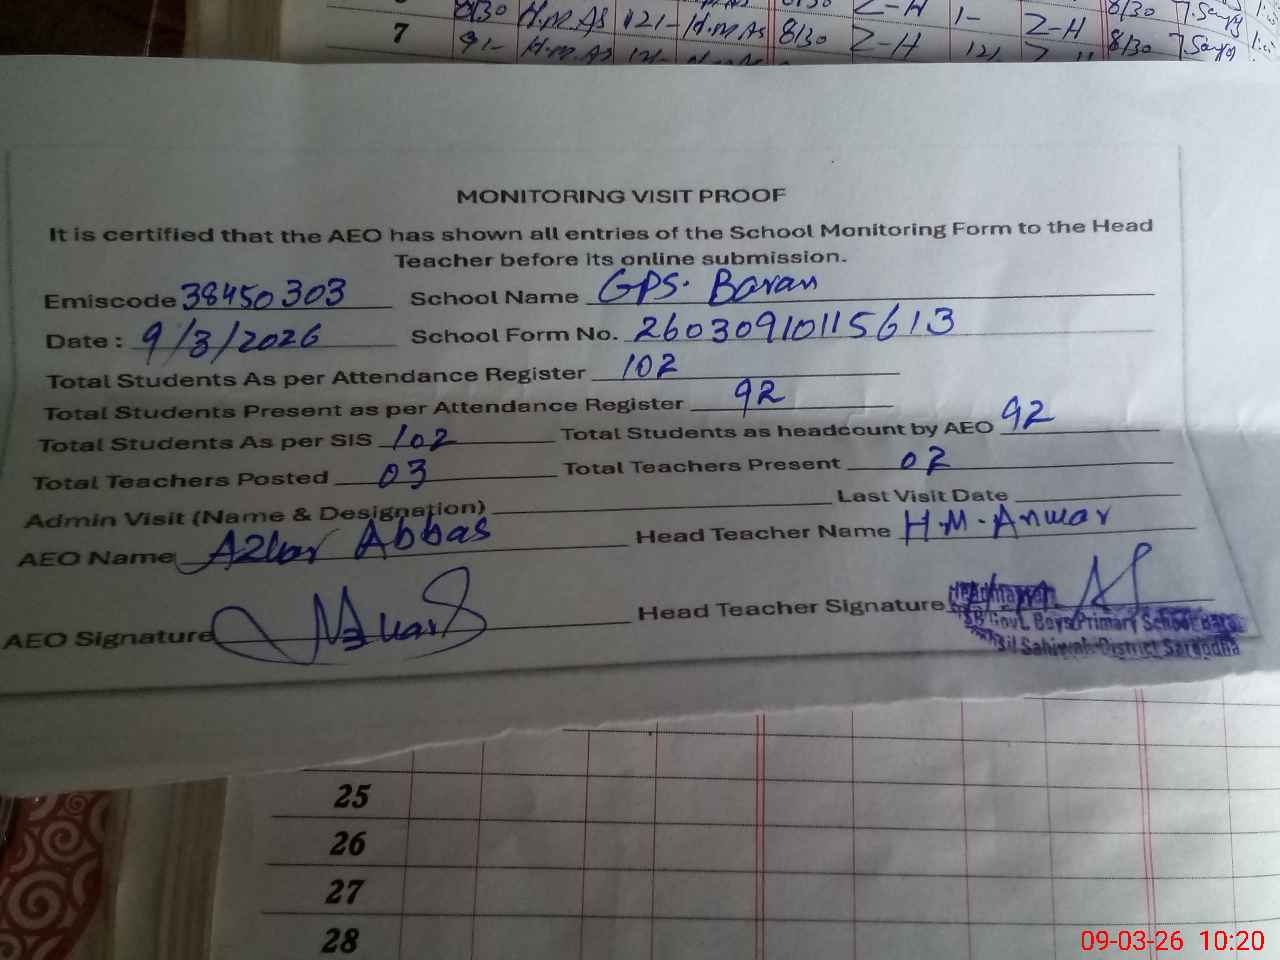 8/30 H.M.AS 121- H.M AS 8/30 Z-H 1- Z-H 8/30
7 91- H.M.AS 121- 8/30 Z-H 121 8/30
MONITORING VISIT PROOF
It is certified that the AEO has shown all entries of the School Monitoring Form to the Head
Teacher before its online submission.
Emiscode 38450303 School Name GPS. Baran
Date : 9/3/2026 School Form No. 26030910115613
Total Students As per Attendance Register 102
Total Students Present as per Attendance Register 92
Total Students As per SIS 102 Total Students as headcount by AEO 92
Total Teachers Posted 03 Total Teachers Present 02
Admin Visit (Name & Designation) Last Visit Date
AEO Name Azhar Abbas Head Teacher Name H.M.Anwar
AEO Signature Head Teacher Signature
Govt. Boys Primary School
District Sargodha
25
26
27
28
09-03-26 10:20